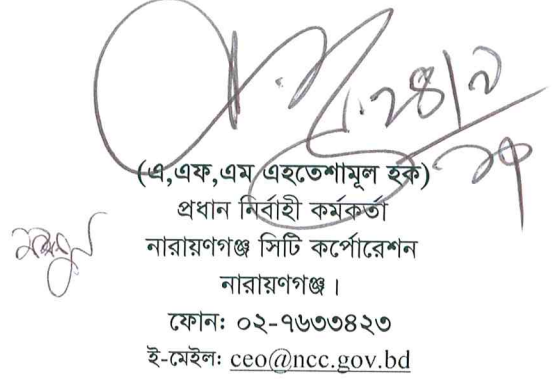 (এ,এফ,এম এহতেশামূল হক)
প্রধান নির্বাহী কর্মকর্তা
নারায়ণগঞ্জ সিটি কর্পোরেশন
নারায়ণগঞ্জ।
ফোন: ০২-৭৬৩৩৪২৩
ই-মেইল: ceo@ncc.gov.bd